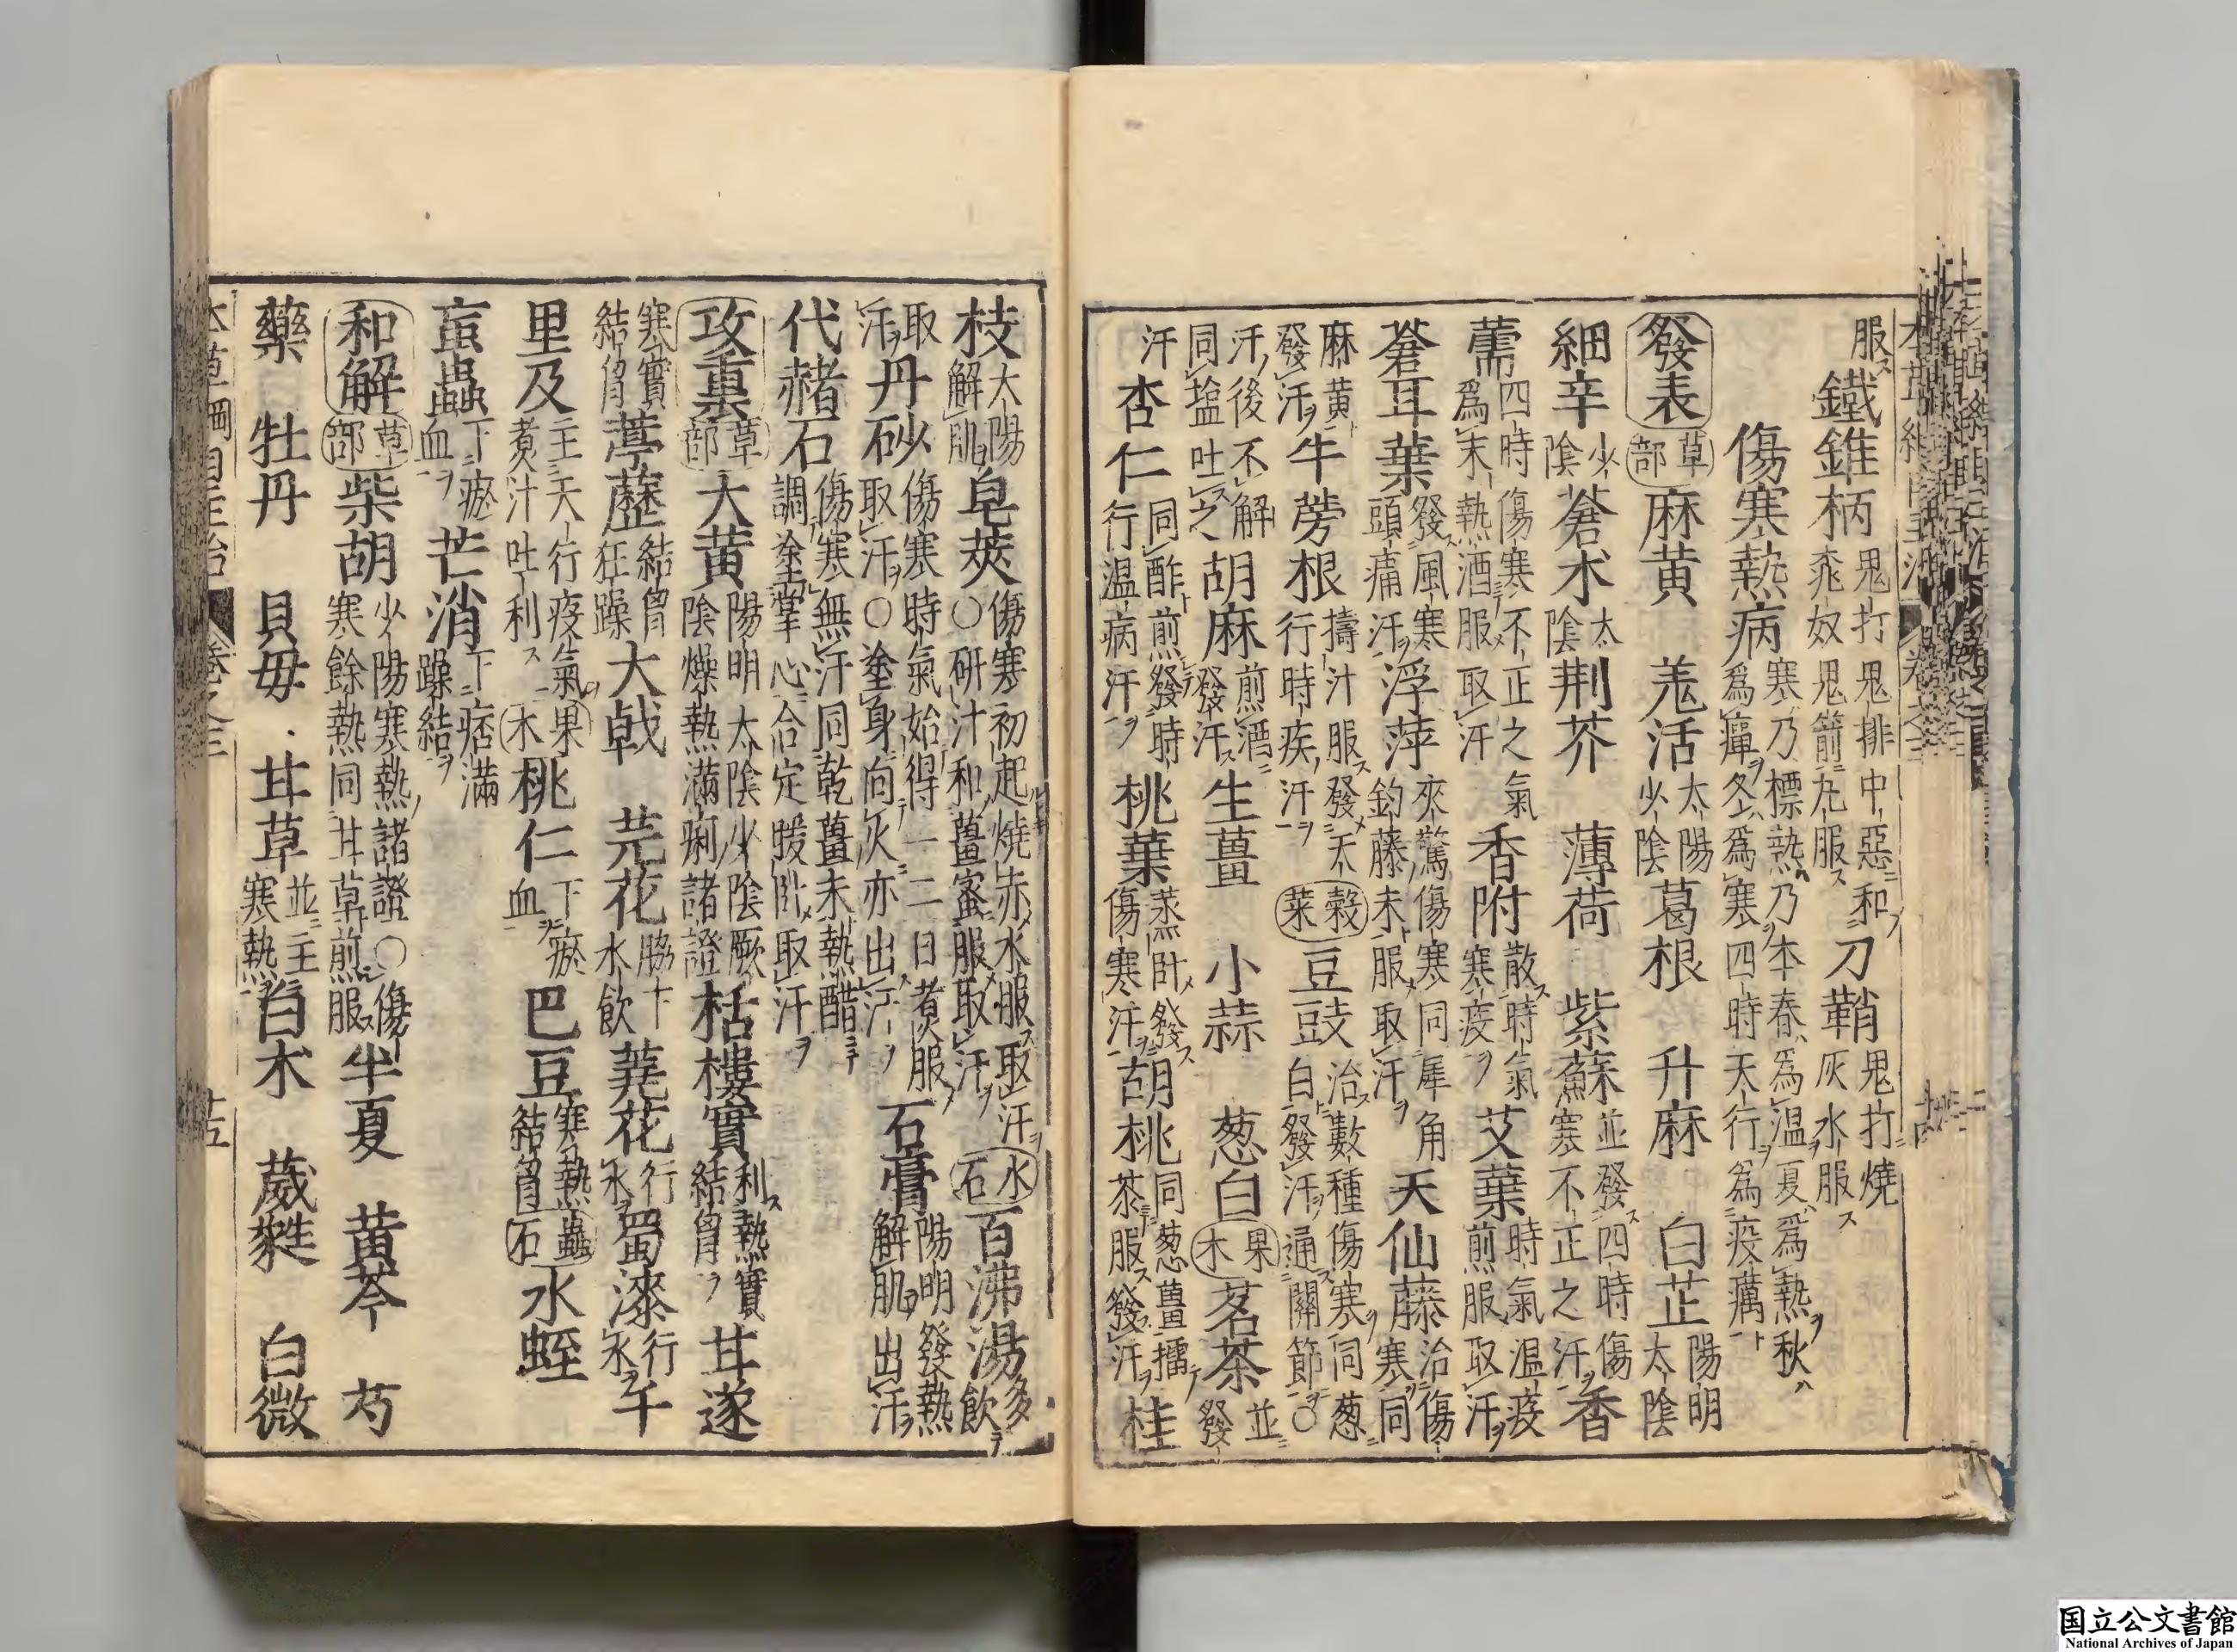 服鐵錐柄鬼打鬼排中惡和桃奴鬼箭丸服刀鞘鬼打燒灰水服
傷寒熱病寒乃標熱乃本春爲温夏爲熱秋爲癉冬爲寒四時天行爲疫癘
發表草部麻黄 羗活太陽少陰葛根 升麻 白芷陽明太陰
細辛少陰蒼朮太陰荆芥 薄荷 紫蘇並發四時傷寒不正之汗香
薷四時傷寒不正之氣爲末熱酒服取汗香附散時氣寒疫艾葉時氣温疫煎服取汗
蒼耳葉發風寒頭痛汗浮萍夾驚傷寒同犀角釣藤末服取汗天仙藤治傷寒同
麻黄發汗牛蒡根擣汁服發天行時疾汗穀菜豆豉治數種傷寒同葱白發汗通關節○
汗後不解同塩吐之胡麻煎酒發汗生薑 小蒜 葱白果木茗茶並發
汗杏仁同酢煎發時行温病汗桃葉蒸卧發傷寒汗胡桃同葱薑擂茶服發汗桂
枝太陽解肌皂莢傷寒初起燒赤水服取汗○研汁和薑蜜服取汗水石百沸湯多飲
取汗丹砂傷寒時氣始得一二日煮服取汗○塗身向火亦出汗石膏陽明發熱解肌出汗
代赭石傷寒無汗同乾薑末熱醋調塗掌心合定暖卧取汗
攻裏草部大黄陽明太陰少陰厥陰燥熱滿痢諸證栝樓實利熱實結胷甘遂
寒實結胷葶藶結胷狂躁大戟 芫花脇下水飲蕘花行水蜀漆行水千
里及主天行疫氣煮汁吐利果木桃仁下瘀血巴豆寒熱結胷蟲石水蛭
蝱蟲下瘀血芒消下痞滿躁結
和解草部柴胡少陽寒熱諸證○傷寒餘熱同甘草煎服半夏 黄芩 芍
藥 牡丹 貝母 甘草並主寒熱白朮 葳蕤 白微
本草綱目主治 卷之三 十五
国立公文書館
National Archives of Japan